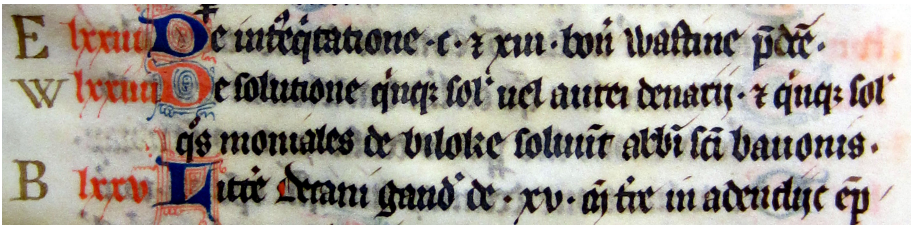 E lxxiii De infẽq̃tatione · c · ⁊ xiii · boñ wastine p̃dc̃e ·
W lxxiiii De solutione q̃nq; sol' uel aurei denarij · ⁊ q̃nq; sol'
q̃s moniales de biloke soluũt abb̃i sc̃i bauonis ·
B lxxv Litt̃e Decani gand' de · xv · t̃re in